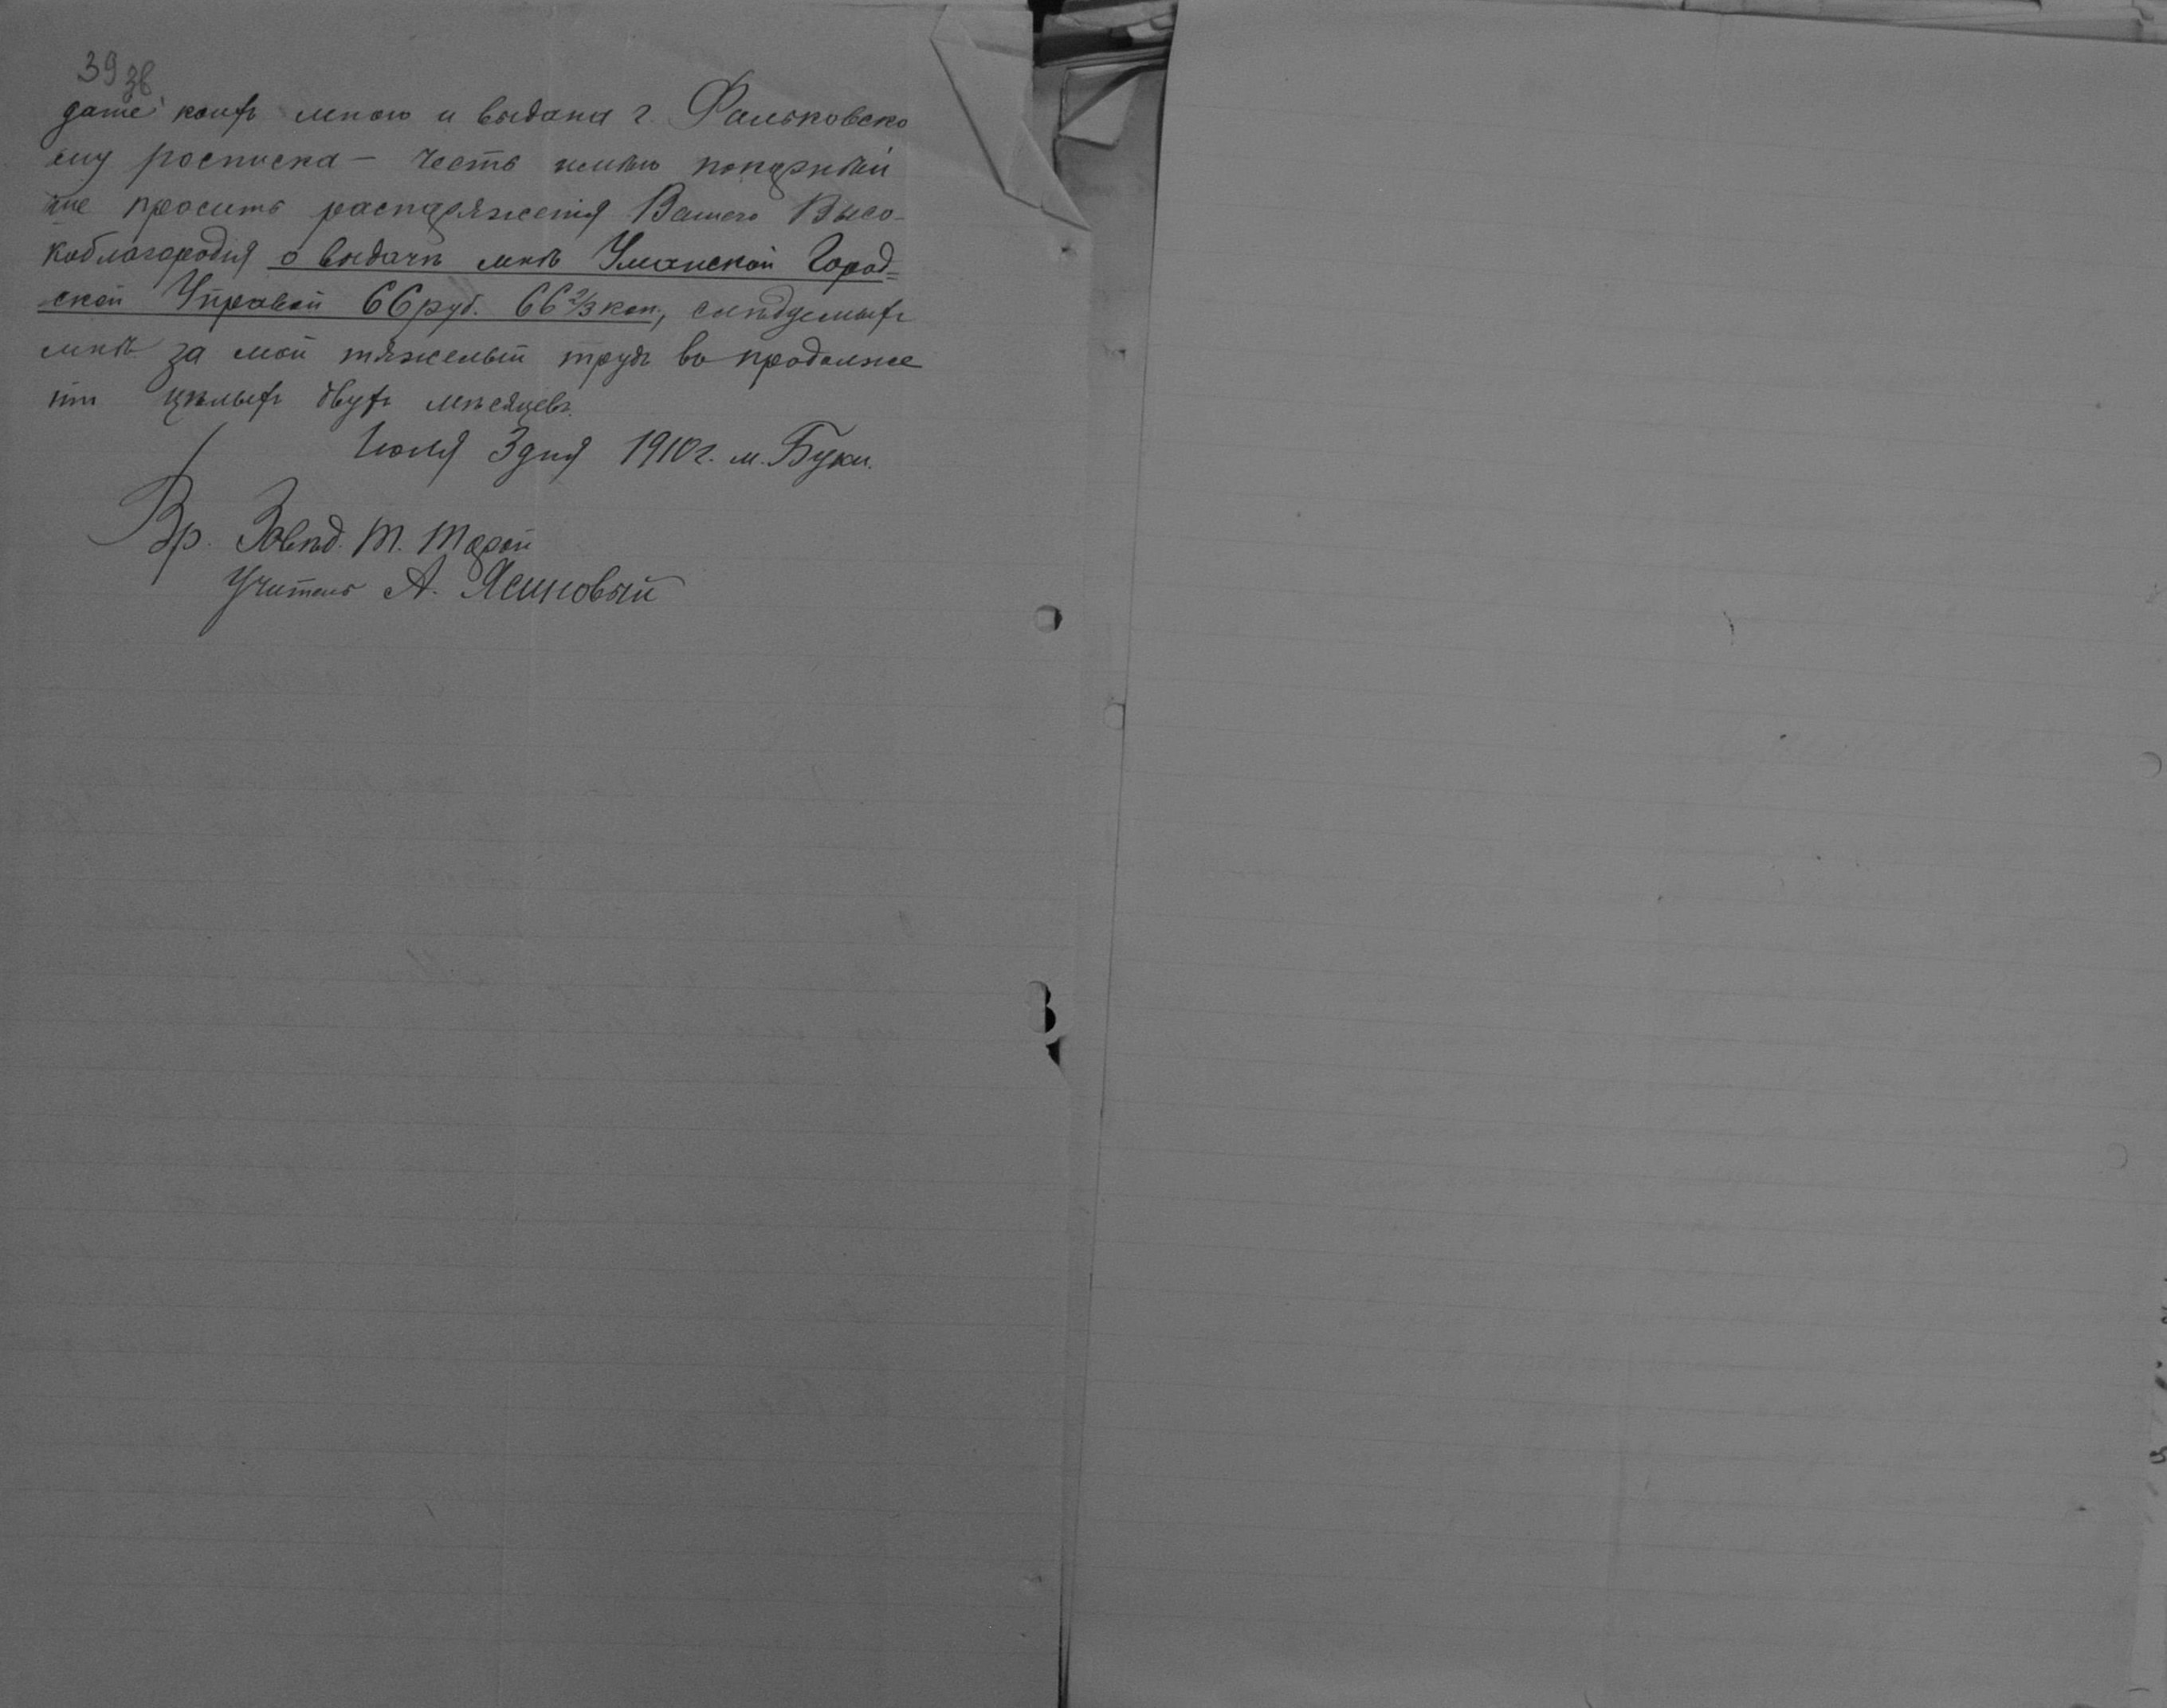 39 зв
даче коихъ мною и выдана г. Фальковско
му росписка — честь имѣю покорнѣй
ше просить распоряженія Вашего Высо-
коблагородія о выдачѣ мнѣ Уманской Город=
ской Управой 66 руб. 66 2/3 коп., слѣдуемыхъ
мнѣ за мой тяжелый трудъ въ продолже
ніи цѣлыхъ двухъ мѣсяцевъ.
Іюля 3 дня 1910 г. м. Буки.
Вр. Завѣд. Т. Торой
Учитель А. Ясиновый